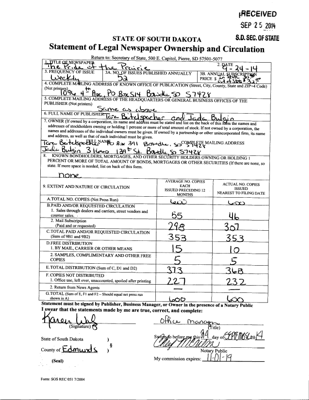 RECEIVED
SEP 25 2014
S.D. SEC. OF STATE
STATE OF SOUTH DAKOTA
Statement of Legal Newspaper Ownership and Circulation
Return to: Secretary of State, 500 E. Capitol, Pierre, SD 57501-5077
1. TITLE OF NEWSPAPER
2. DATE
The Pride of the Prairie
9-24-14
3. FREQUENCY OF ISSUE
3A. NO. OF ISSUES PUBLISHED ANNUALLY
Weekly
52
4. COMPLETE MAILING ADDRESS OF KNOWN OFFICE OF PUBLICATION (Street, City, County, State and ZIP+4 Code)
(Not printers)
5. COMPLETE MAILING ADDRESS OF THE HEADQUARTERS OF GENERAL BUSINESS OFFICES OF THE
PUBLISHER (Not printers)
Same as above
6. FULL NAME OF PUBLISHER
7. OWNER (If owned by a corporation, its name and address must be stated and list on the back of this form the names and
addresses of stockholders owning or holding 1 percent or more of total amount of stock. If not owned by a corporation, the
names and addresses of the individual owners must be given. If owned by a partnership or other unincorporated firm, its name
and address, as well as that of each individual must be given.
COMPLETE MAILING ADDRESS
8. KNOWN BONDHOLDERS, MORTGAGEES, AND OTHER SECURITY HOLDERS OWNING OR HOLDING 1
PERCENT OR MORE OF TOTAL AMOUNT OF BONDS, MORTGAGES OR OTHER SECURITIES (If there are none, so
state. If more space is needed, list on back of this form.
none
9. EXTENT AND NATURE OF CIRCULATION
AVERAGE NO. COPIES EACH ISSUED PRECEDING 12 MONTHS
ACTUAL NO. COPIES ISSUED NEAREST TO FILING DATE
A. TOTAL NO. COPIES (Net Press Run)
600 600
B. PAID AND/OR REQUESTED CIRCULATION
1. Sales through dealers and carriers, street vendors and counter sales
55 46
2. Mail Subscription
(Paid and or requested)
298 307
C. TOTAL PAID AND/OR REQUESTED CIRCULATION
(Sum of 9B1 and 9B2)
353 353
D. FREE DISTRIBUTION
1. BY MAIL, CARRIER OR OTHER MEANS
15 10
2. SAMPLES, COMPLIMENTARY AND OTHER FREE COPIES
5 5
E. TOTAL DISTRIBUTION (Sum of C, D1 and D2)
373 368
F. COPIES NOT DISTRIBUTED
1. Office use, left over, unaccounted, spoiled after printing
227 232
2. Return from News Agents
G. TOTAL (Sum of E, F1 and F2 – Should equal net press run shown in A)
600 600
Statement must be signed by Publisher, Business Manager, or Owner in the presence of a Notary Public
I swear that the statements made by me are true, correct, and complete:
office manager
(Signature) (Title)
State of South Dakota )
County of Edmunds )
Notary Public
(Seal)
My commission expires: 11-01-19
Form: SOS REC 051 7/2004